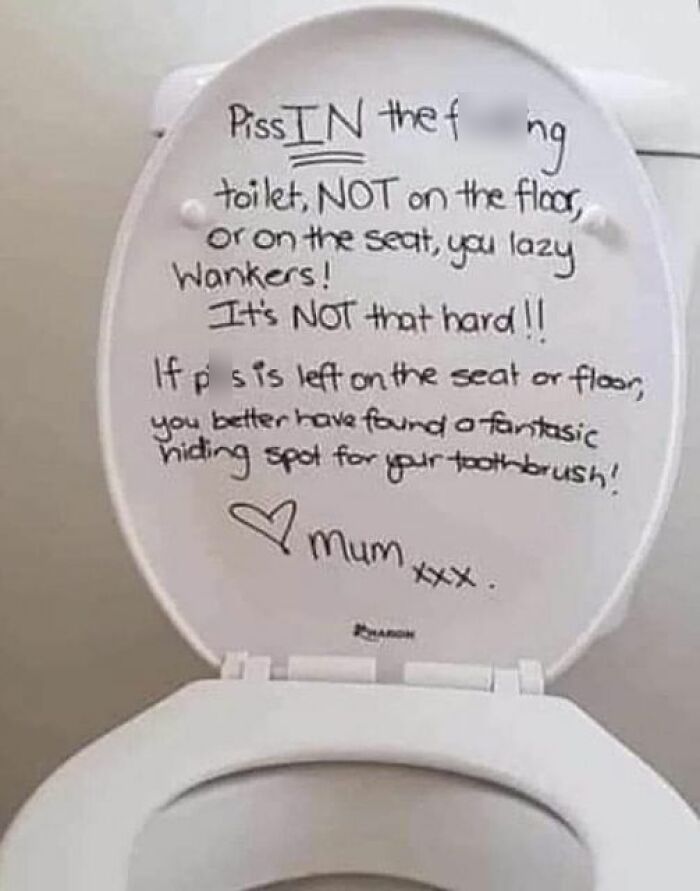 Piss IN the f ng
toilet, NOT on the floor,
or on the seat, you lazy
Wankers!
It's NOT that hard!!
If p s is left on the seat or floor,
you better have found a fantasic
hiding spot for your toothbrush!
♡ mum xxx.